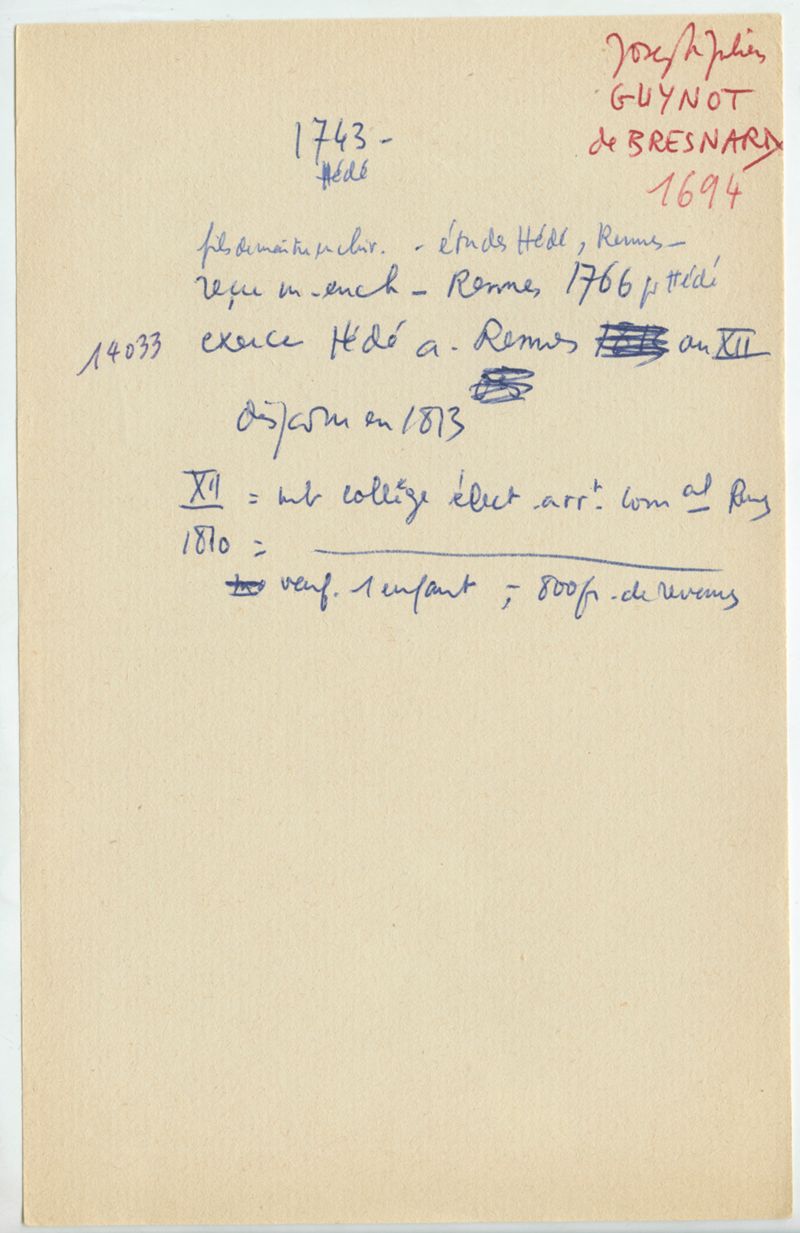 Joseph Julien
GUYNOT
de BRESNARD
1694
1743 -
Hédé
fils de maître en chir. - études Hédé, Rennes -
reçu m. en ch - Rennes 1766 pr Hédé
14033
exerce Hédé a. Rennes 1813 an XII
disparu en 1813
XII = mb collège élect. arrt. com al
1810 =
veuf. 1 enfant ; - 800 fr. de revenus